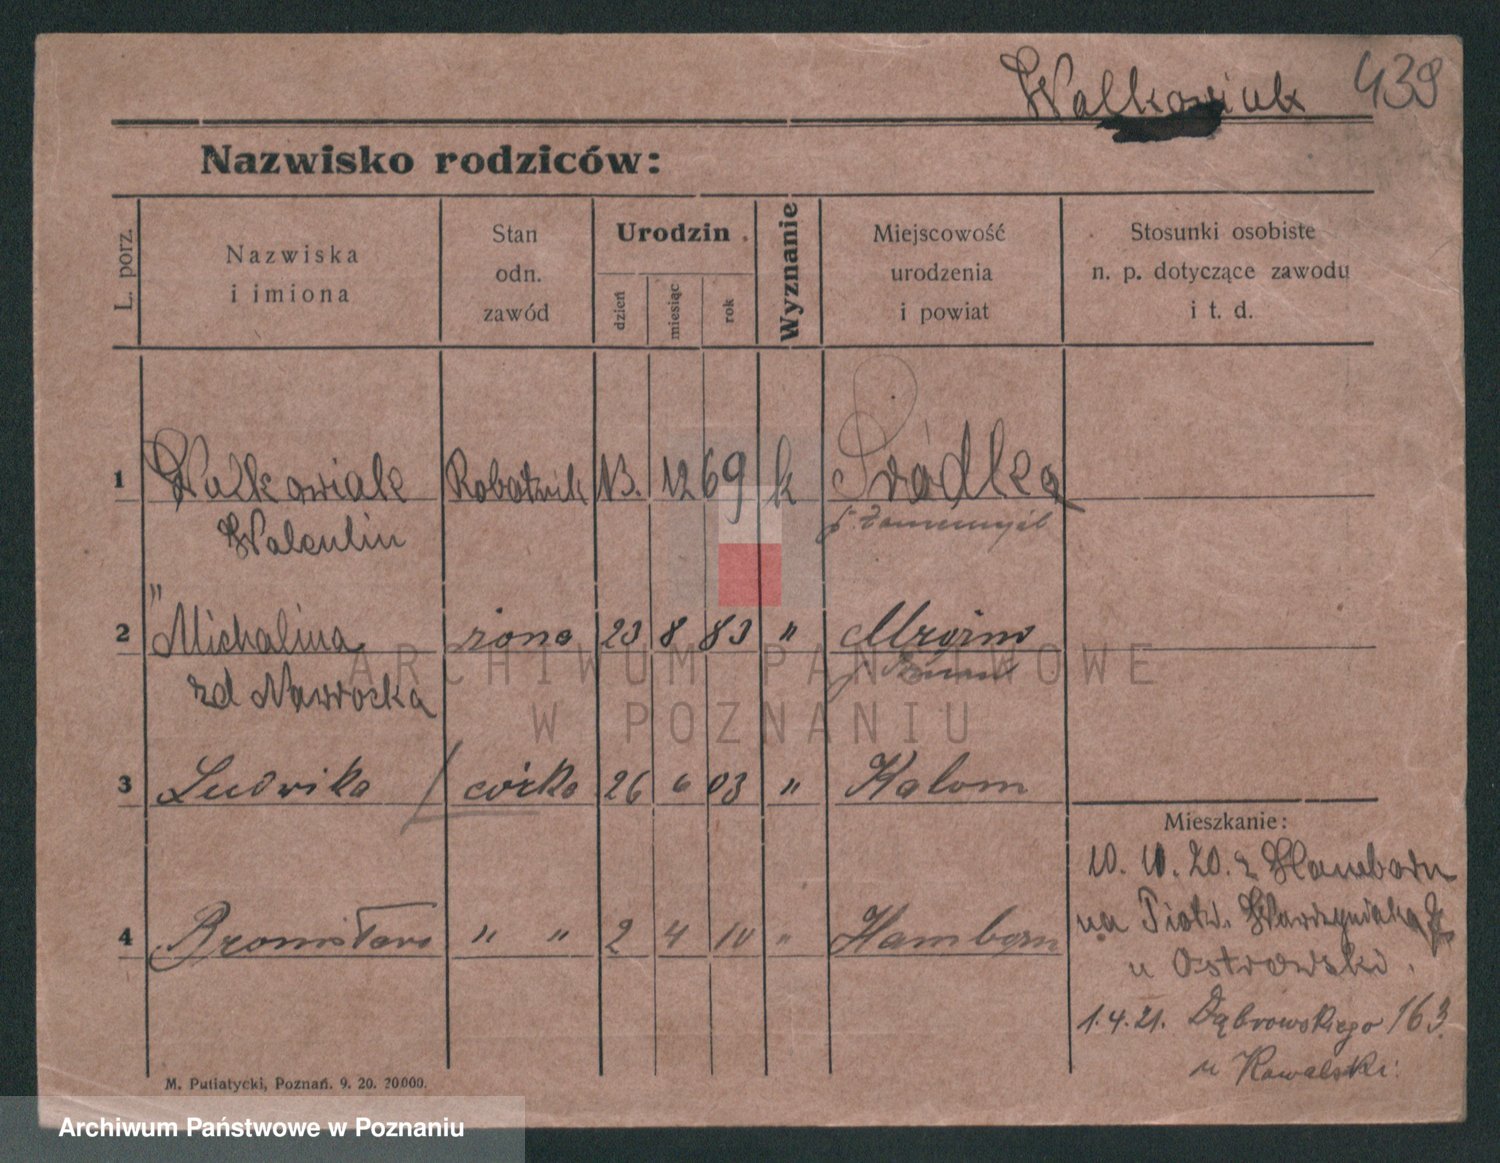 Walkowiak 439
Nazwisko rodziców:
L. porz.
Nazwiska
i imiona
Stan
odn.
zawód
Urodzin
dzień
miesiąc
rok
Wyznanie
Miejscowość
urodzenia
i powiat
Stosunki osobiste
n. p. dotyczące zawodu
i t. d.
1 Walkowiak Robotnik 13. 12 69 k
Walentin
2 " Michalina żona 23 8 83 "
zd Nawrocka
3 Ludwika córka 26 6 03 "
Mieszkanie:
10. 10. 20. z Hamborn
na Piotr. Wawrzyniaka
4 Bronisława " " 2 4 10 " Hamborn
u Ostrowski.
1.4.21. Dąbrowskiego 163
u Kowalski
M. Putiatycki, Poznań. 9. 20. 20000.
ARCHIWUM PAŃSTWOWE
W POZNANIU
Archiwum Państwowe w Poznaniu